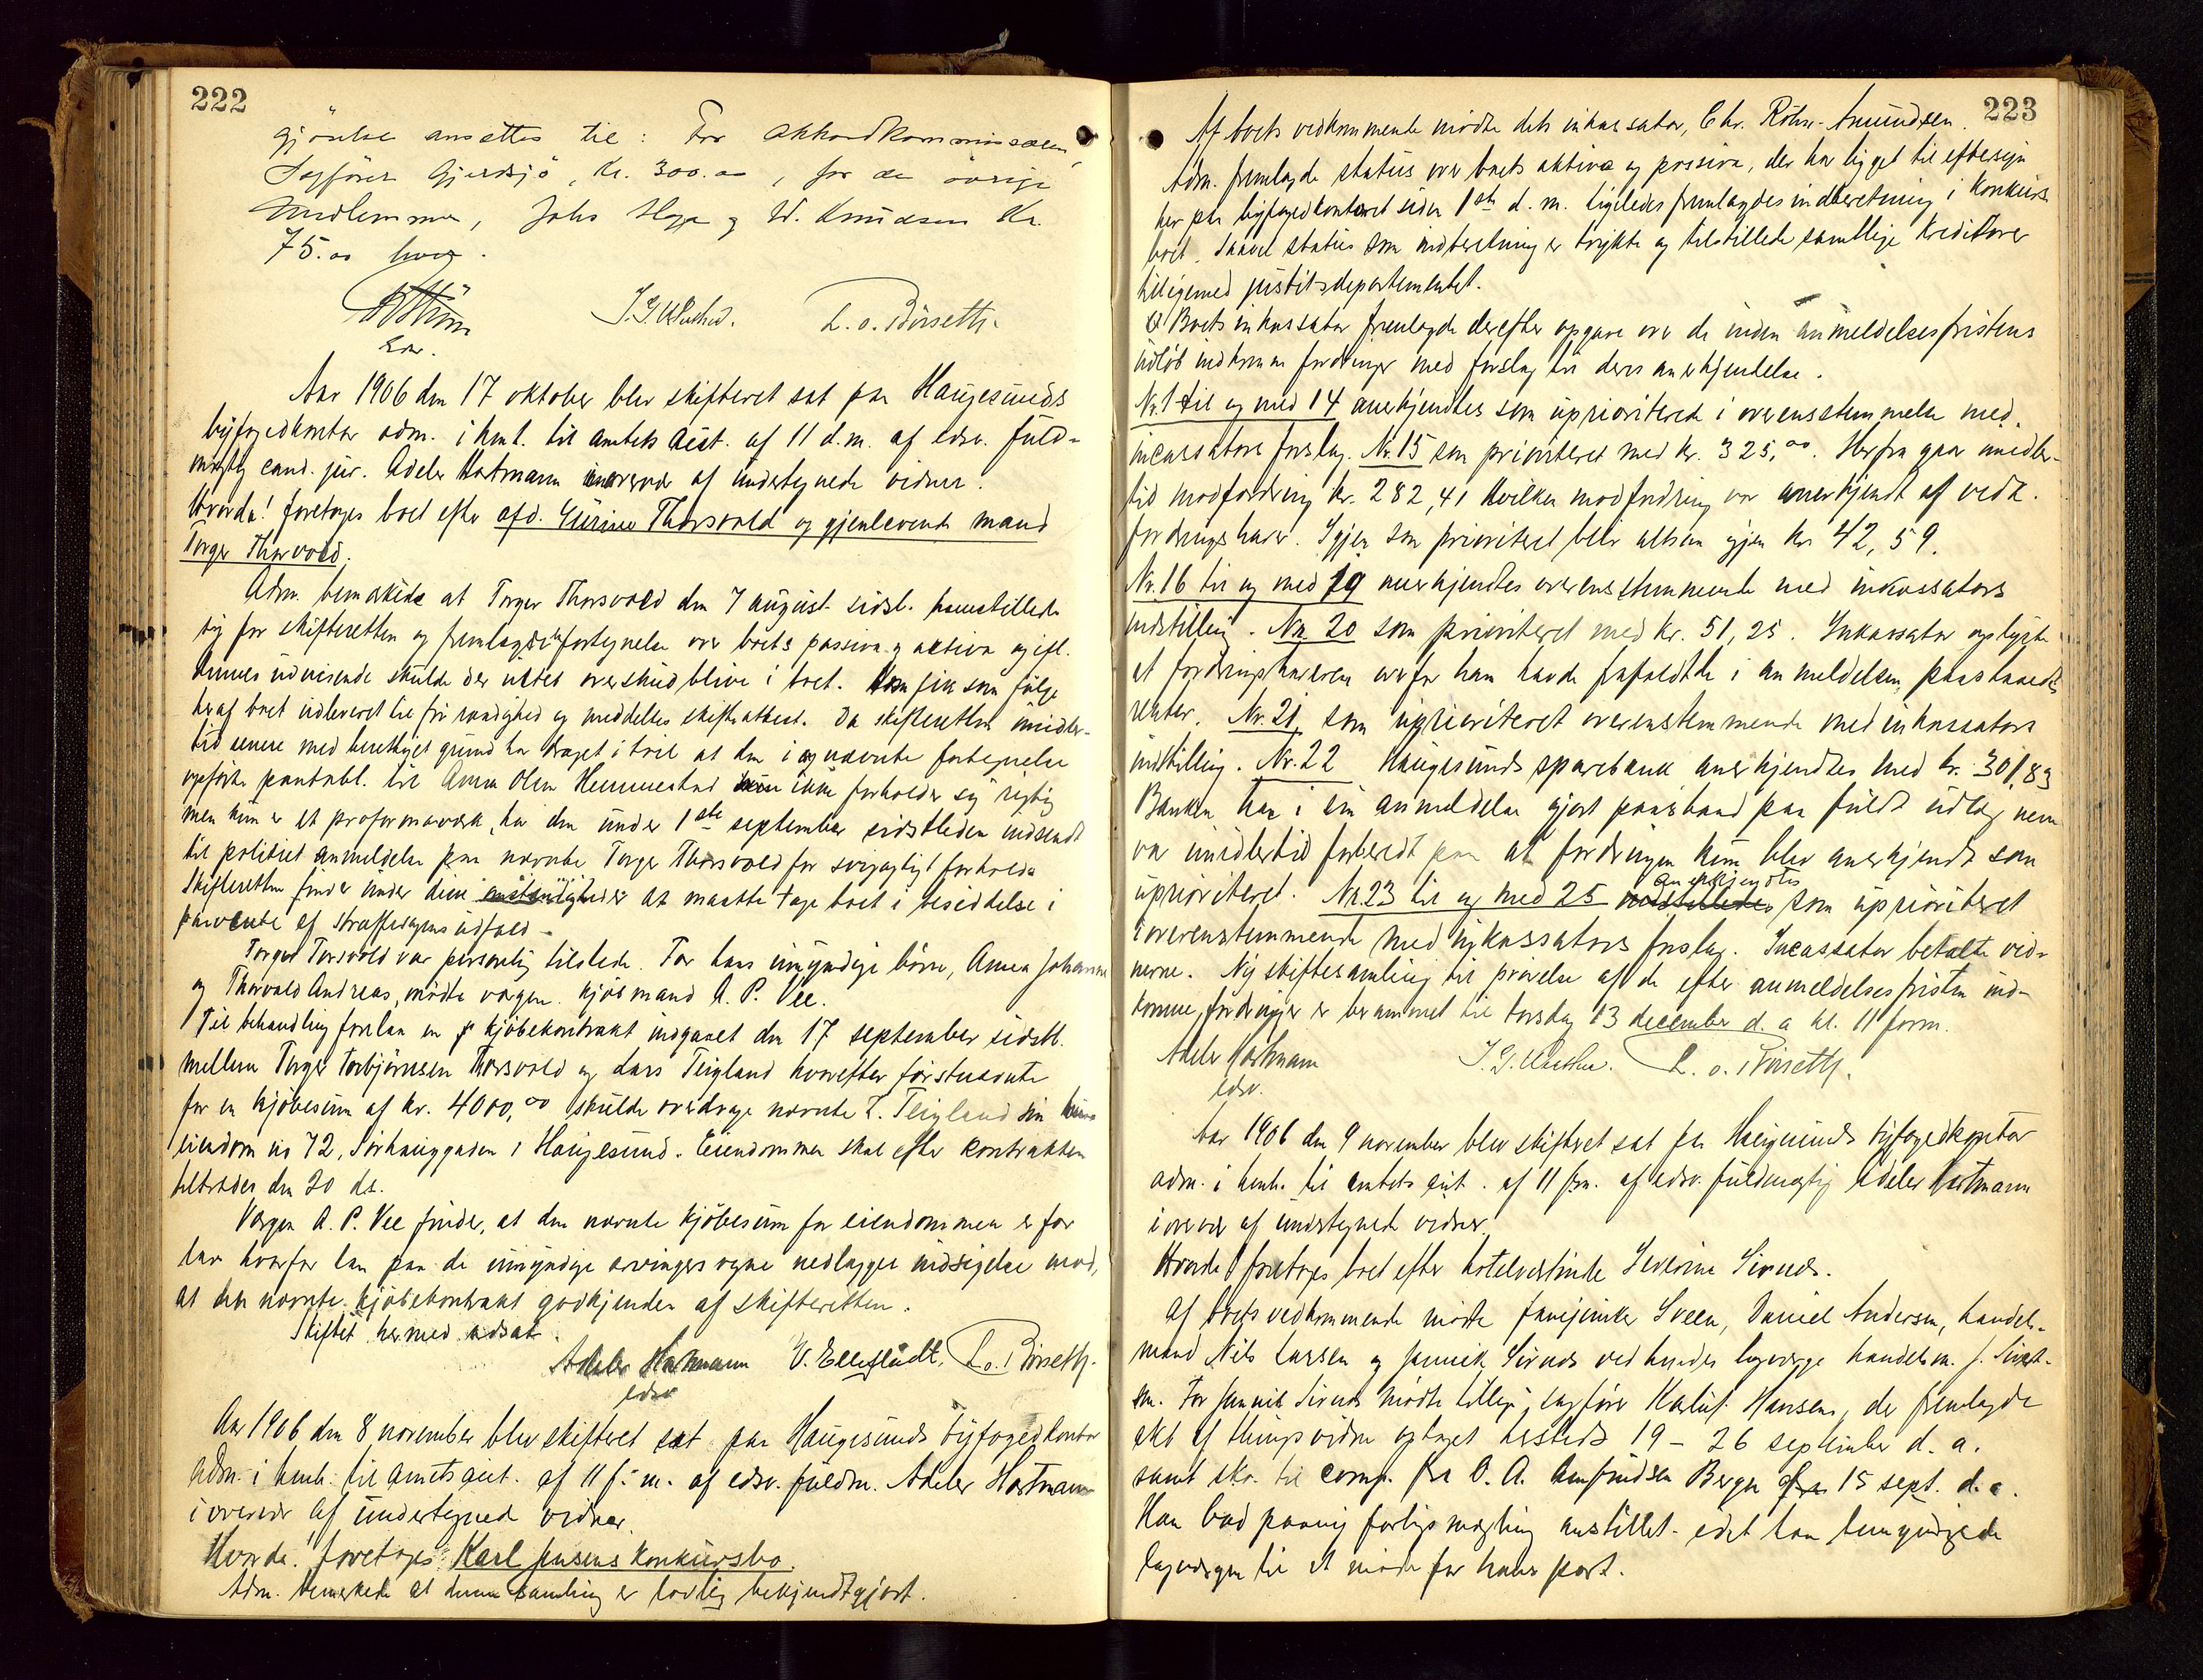 222
gjörelse ansættes til: For Akkordkommissæren,
Sagförer Gjerdsjö, Kr. 300.00, for de övrige
Medlemmer, Johs Hope og W. Knudsen Kr.
75.00 hver.
J. G. L. o. Börseth.
Edsv.
Aar 1906 den 17 oktober blev skifteret sat paa Haugesunds
byfogedkontor adm. i hent. til amtets aut. af 11 d.m. af edsv. fuld-
mægtig cand. jur. Adeler Hartmann i overvær af undertegnede vidner.
Hvorda! foretoges boet efter afd. Gurine Thorsvold og gjenlevende mand
Torger Thorsvold.
Adm. bemærkede at Torger Thorsvold den 7 august sidstl. fremstillede
sig for skifteretten og fremlagde fortegnelse over boets passiva og aktiva og ifl.
dennes udvisende skulde der intet overskud blive i boet. Han fik som følge
heraf boet udleveret til fri raadighed og meddeltes skifteattest. Da skifteretten imidler-
tid senere med berettiget grund har draget i tvil at den i nævnte fortegnelse
opførte pantobl. til Anna Olsen Hemmestad ikke forholder sig rigtig
men kun er et proformaværk, har den under 1ste september sidstleden indsendt
til politiet anmeldelse paa nævnte Torger Thorsvold for svigagtigt forhold.
Skifteretten finder under disse omstændigheder at maatte tage boet i besiddelse i
paavente af straffesagens udfald.
Torger Torsvold var personlig tilstede. For hans umyndige børn, Anna Johanne
og Thorvald Andreas, mødte vergen kjøbmand A. P. Vee.
Til behandling forelaa en kjøbekontrakt indgaaet den 17 september sidstl.
mellem Torger Torbjørnsen Thorsvold og Lars Teigland hvorefter førstnævnte
for en kjøbesum af kr. 4000,00 skulde overdrage nævnte L. Teigland sin
eiendom no 72, Sørhauggaden i Haugesund. Eiendommen skal efter kontrakten
tiltrædes den 20 ds.
Vergen A. P. Vee finder, at den nævnte kjøbesum for eiendommen er for
lav hvorfor han paa de umyndige arvingers vegne nedlagger indsigelse mod,
at den nævnte kjøbekontrakt godkjendes af skifteretten.
Skiftet hermed udsat.
Adeler Hartmann V. Elleflådt. L. o. Börseth.
edsv
Aar 1906 den 8 november blev skifteret sat paa Haugesunds byfogedkontor
Adm. i henh. til amtets aut. af 11 f. m. af edsv. fuldm. Adeler Hartmann
i overvær af undertegnede vidner.
Hvorda! foretoges: Karl Jensens konkursbo.
Adm. bemærkede at denne samling er lovlig bekjendtgjort.
223
Af boets vedkommende mødte dets inkassator, Chr. Röhr-Amundsen.
Adm. fremlagde status over boets aktiva og passiva, der har ligget til eftersyn
her paa byfogedkontoret siden 1ste d. m. Ligeledes fremlagdes indberetning i konkurs-
boet. Saavel status som indberetning er trykte og tilstillede samtlige kreditorer
tilligemed justitsdepartementet.
Boets inkassator fremlagde derefter opgave over de inden anmeldelsesfristens
udløb indkomne fordringer med forslag til deres anerkjendelse.
Nr. 1 til og med 14 anerkjendtes som uprioriterede i overensstemmelse med
incassators forslag. Nr. 15 som prioriteret med kr. 325,00. Herfra gaar imidler-
tid modfordring kr. 282,41 hvilken modfordring var anerkjendt af vedk.
fordringshaver. Igjen som prioriteret blir altsaa igjen kr. 42,59.
Nr. 16 til og med 19 anerkjendtes overensstemmende med inkassators
indstilling. Nr. 20 som prioriteret med kr. 51,25. Inkassator oplyste
at fordringshaveren overfor ham havde frafaldt de i anmeldelsen paastaaede
renter. Nr. 21 som uprioriteret overenstemmende med inkassators
indstilling. Nr. 22 Haugesunds sparebank anerkjendtes med kr. 301,83
Banken har i sin anmeldelse gjort paastand paa fuldt udlæg men
var imidlertid forberedt paa at fordringen kun blev anerkjendt som
uprioriteret. Nr. 23 til og med 25 anerkjendtes som uprioriteret
i overenstemmende med inkassators forslag. Incassator betalte vid-
nerne. Ny skiftesamling til prøvelse af de efter anmeldelsesfristen ind-
komne fordringer er berammet til torsdag 13 december d. a kl. 11 form.
Adeler Hartmann J. G. L. o. Börseth.
edsv.
Aar 1906 den 9 november blev skifteret sat paa Haugesunds byfogedkontor
adm. i henh. til amtets aut. af 11 f.m. af edsv. fuldmægtig Adeler Hartmann
i overvær af undertegnede vidner.
Hvorda! foretoges boet efter hotelvertinde Severine Sivnds.
Af boets vedkommende mødte Sveen, Daniel Andersen, handels-
mand Nils Larsen og Jannik Sivnds ved hendes lagverge handelsm. J. Sivert-
sen. For Jannik Sivnds mødte tillige sagfører Karluf Hansen, der fremlagde
akt af thingsvidne optaget hersteds 19 - 26 september d. a.
samt skr. til comp. fra O. A. Amfindsen Bergen 15 sept. d. a.
Han bad paany forligsmægling anstillet - idet han
lagvergen til et møde for hans part.